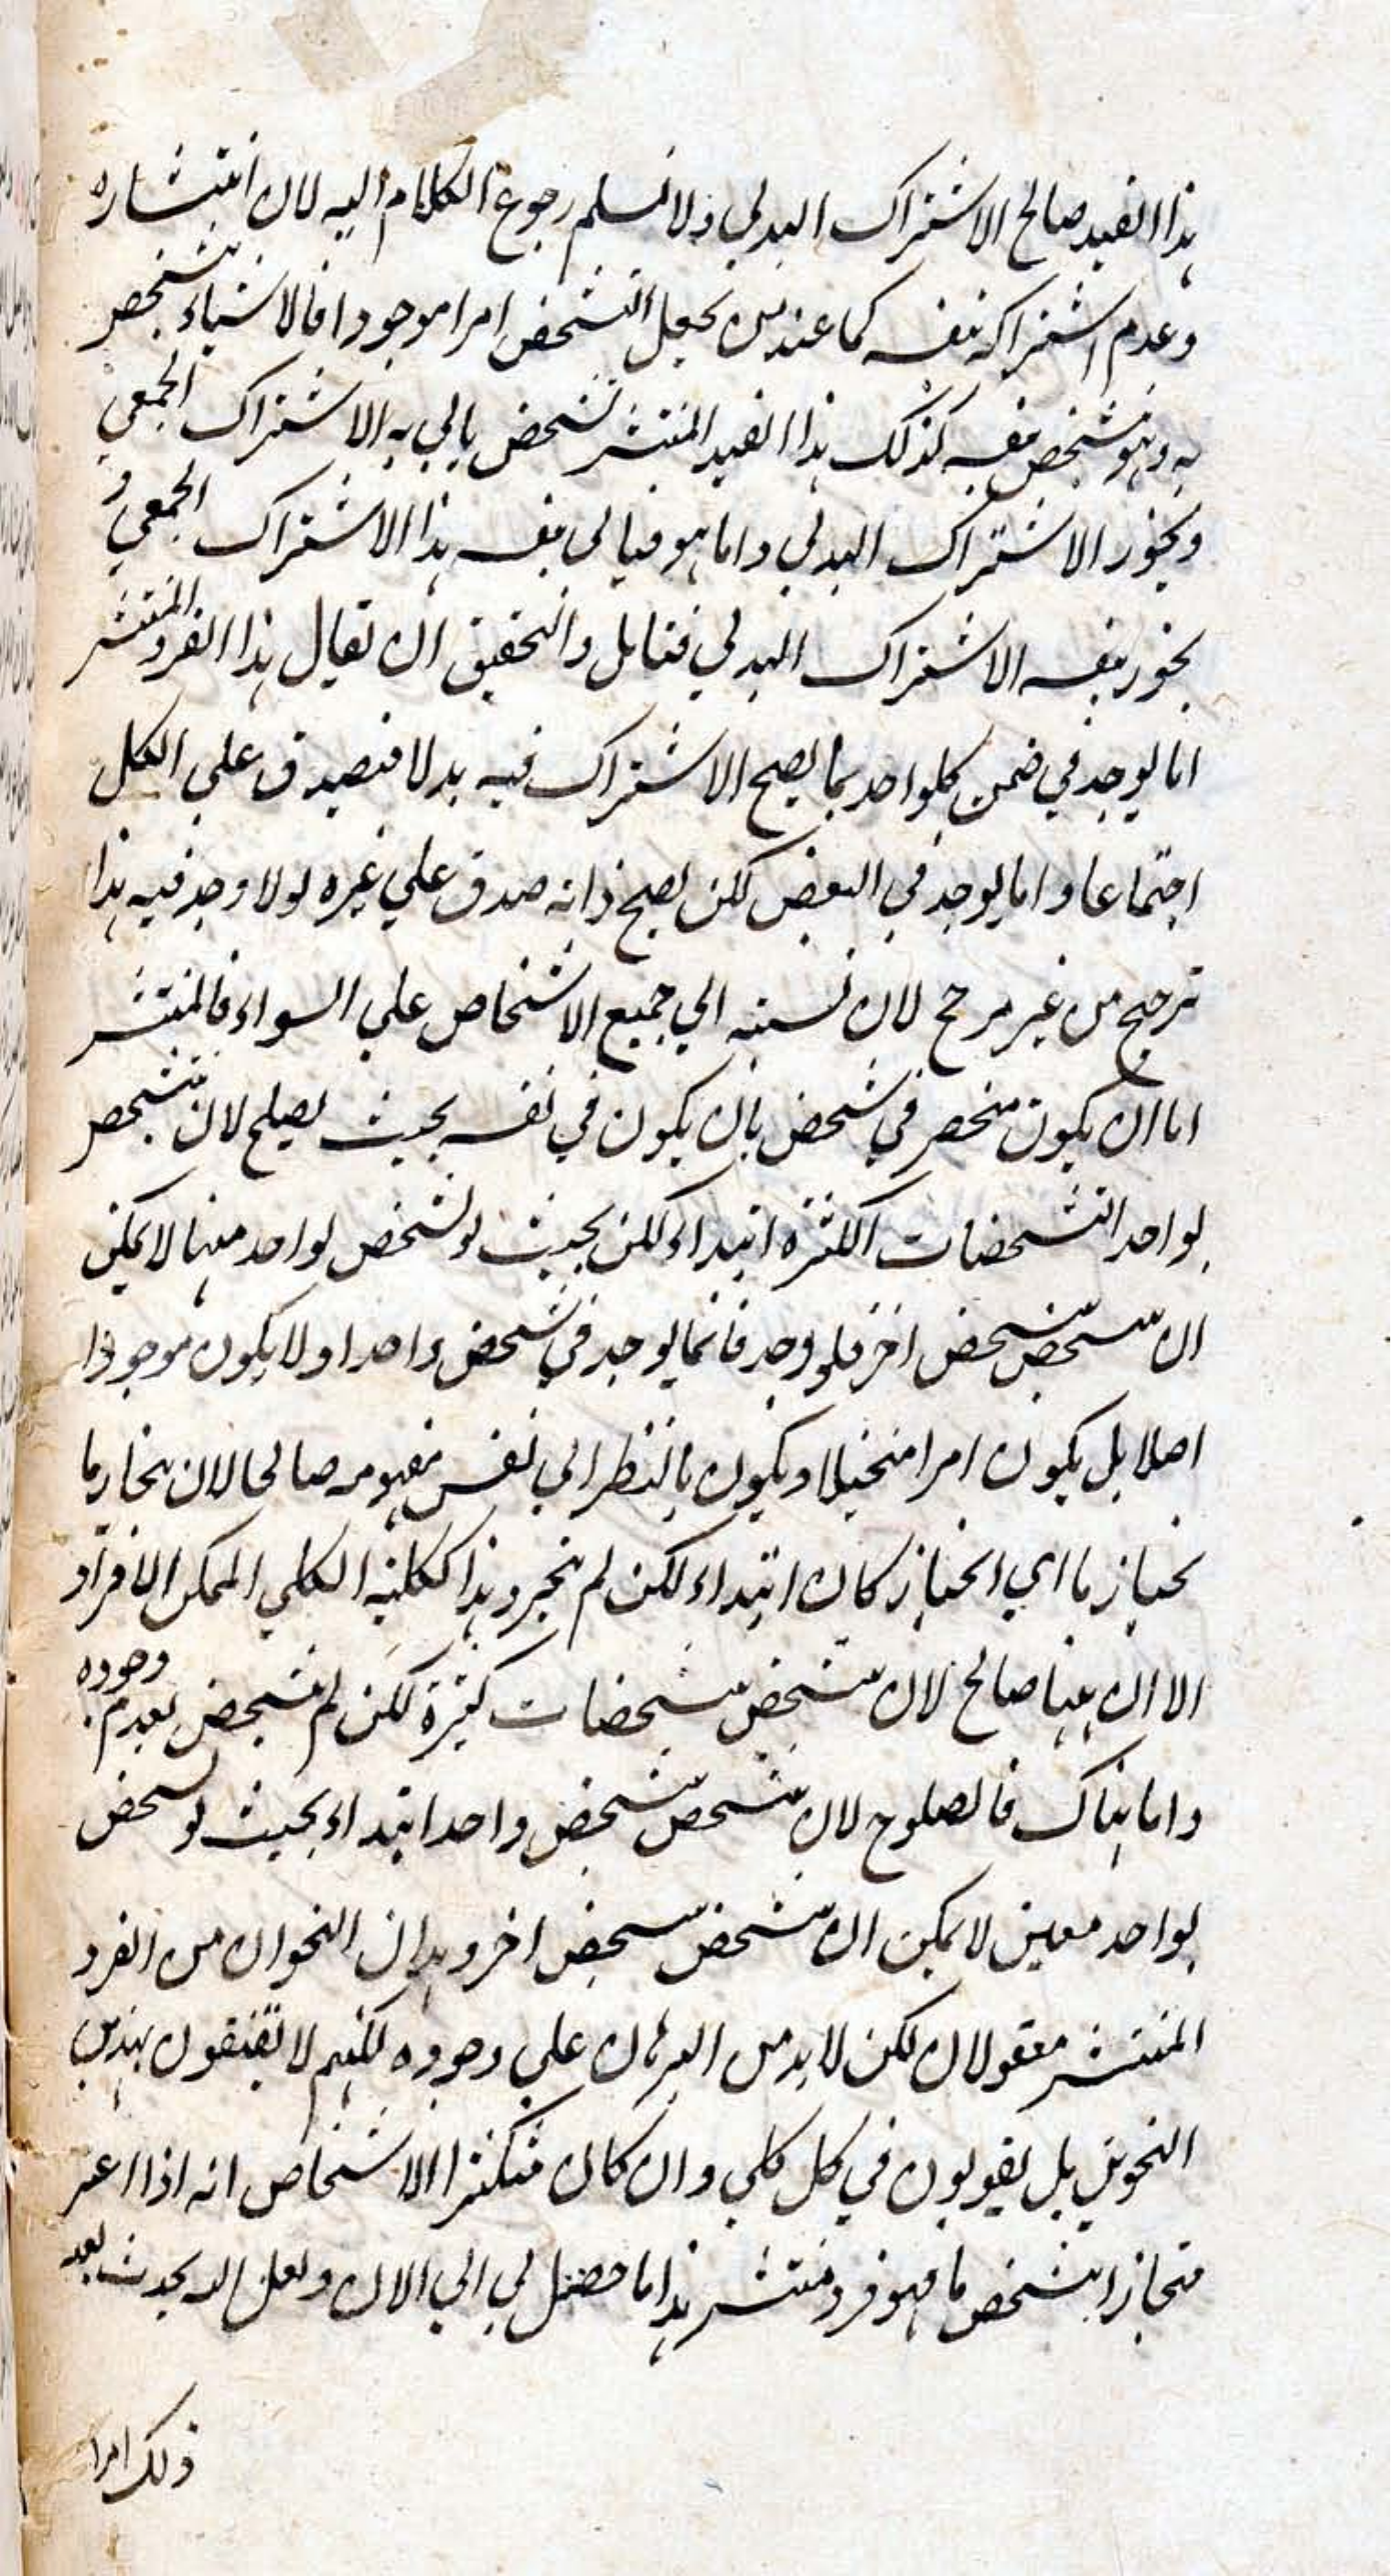 هذا القيد صالح الاشتراك البدلي ولا نسلم رجوع الكلام اليه لان انتشاره
وعدم اشتراكه بنفسه كما عند من يجعل التشخص امرا موجودا فالاشياء يتشخص
به وهو متشخص بنفسه كذلك هذا القيد المنتشر تشخص يابي به الاشتراك الجمعي
ويجوز الاشتراك البدلي واما هو فيابى بنفسه هذا الاشتراك الجمعي و
يجوز بنفسه الاشتراك البدلي فتامل والتحقيق ان يقال هذا الفرد المنتشر
اما يوجد في ضمن كلواحد بما يصح الاشتراك فيه بدلا فيصدق علي الكل
اجتماعا واما يوجد في البعض لكن يصح ذاته صدق علي غيره لولا وجد فيه هذا
ترجيح من غير مرجح لان نسبته الي جميع الاشخاص علي السواء فالمنتشر
اما ان يكون منحصر في شخص بان يكون في نفسه بحيث يصلح لان يتشخص
بواحد التشخصات الكثرة ابتداء لكن بحيث لو تشخص بواحد منها لا يمكن
ان يتشخص بتشخص اخر فلو وجد فانما يوجد في شخص واحد او لا يكون موجودا
اصلا بل يكون امرا متخيلا ويكون بالنظر الي نفس مفهومه صالحا لان ينحاز بما
بحياز ما اي انحياز كان ابتداء لكن لم ينحز وهذا ككلية الكلي الممكن الافراد
الا ان هنا صالح لان يتشخص بتشخصات كثيرة لكن لم يتشخص لعدم وجوده
واما هناك فالصلوح لان يتشخص بتشخص واحد ابتداء بحيث لو تشخص
بواحد معين لا يمكن ان يتشخص بتشخص اخر وهذان النحوان من الفرد
المنتشر معقولان لكن لا بد من البرهان علي وجوده لكنهم لا يقنعون بهذين
النحوين بل يقولون في كل كلي وان كان متكثرا الاشخاص انه اذا اعتبر
منحازا بتشخص ما فهو فرد منتشر هذا ما حصل لي الي الان ولعل الله يحدث بعد
ذلك امرا